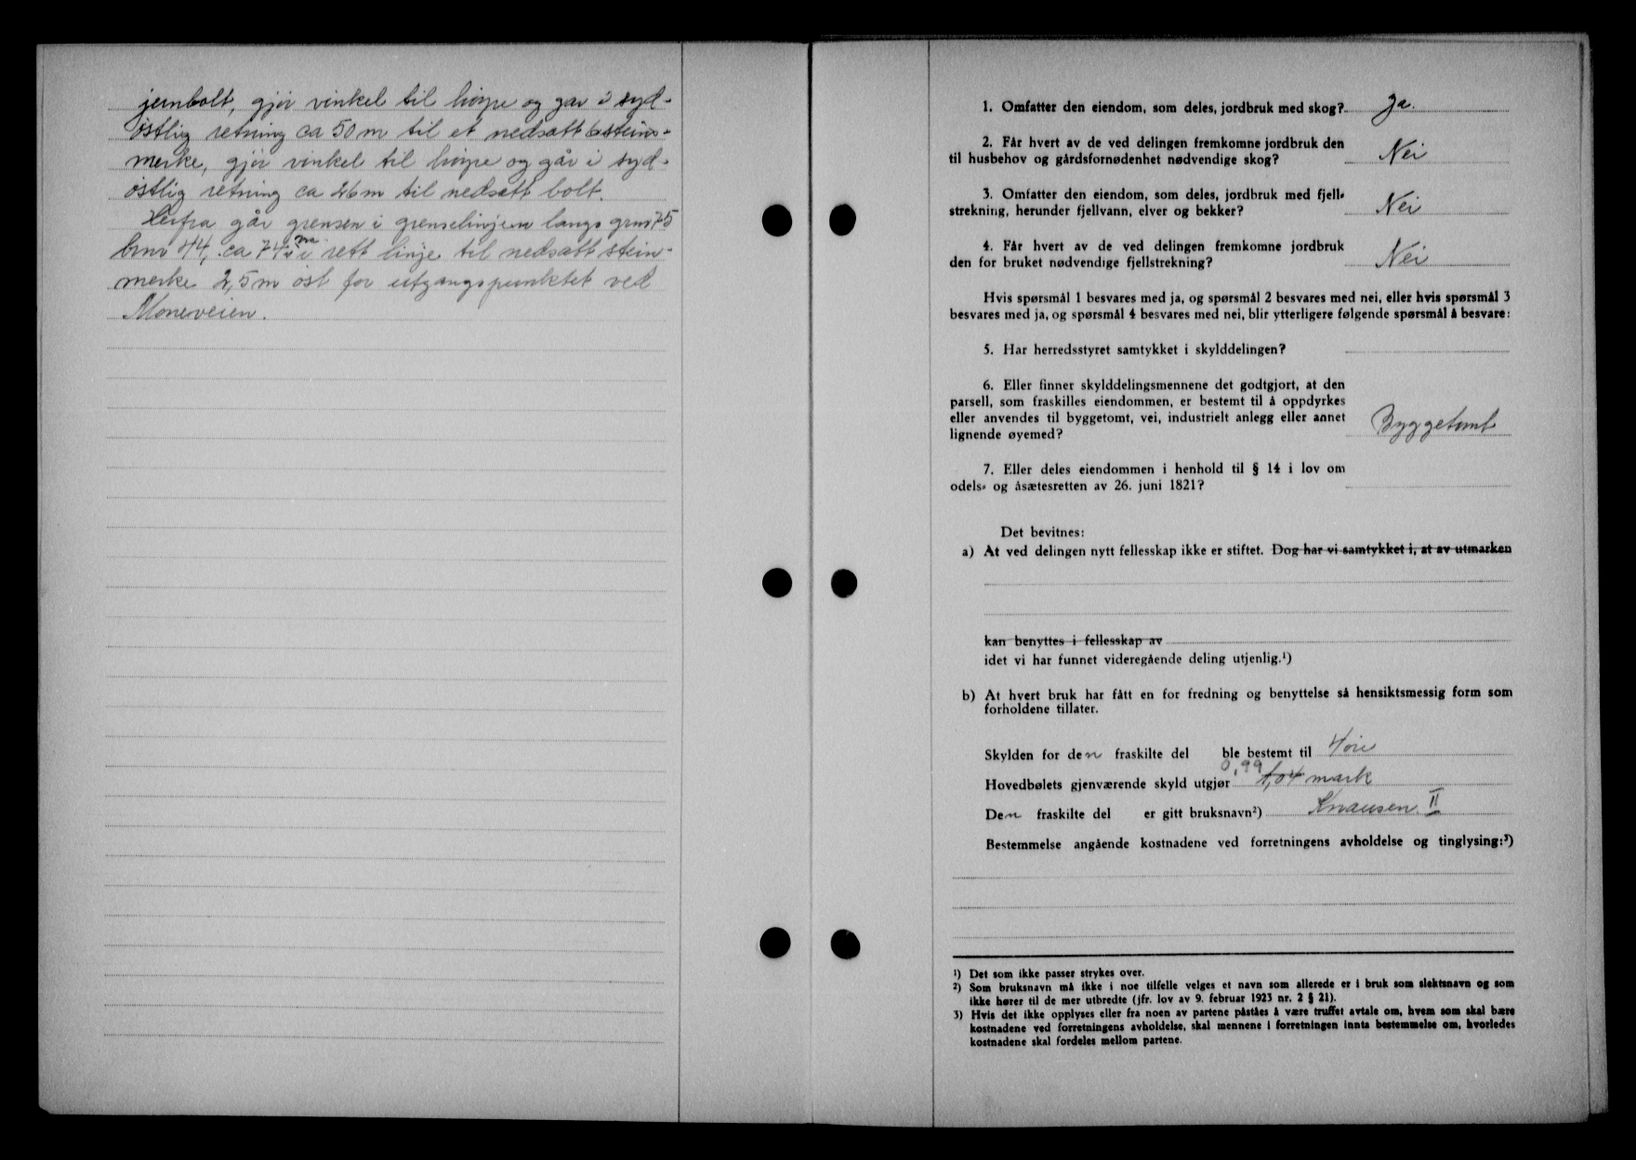 jernbolt, gjør vinkel til høyre og går i syd-
østlig retning ca 50 m til et nedsatt steins-
merke, gjør vinkel til høyre og går i syd-
østlig retning ca 26 m til nedsatt bolt.
Herfra går grensen i grenselinjen langs grnr 75
brnr 44, ca 74 m i rett linje til nedsatt stein-
merke 2,5 m øst for utgangspunktet ved
Moneveien.
1. Omfatter den eiendom, som deles, jordbruk med skog? Ja.
2. Får hvert av de ved delingen fremkomne jordbruk den
til husbehov og gårdsfornødenhet nødvendige skog? Nei
3. Omfatter den eiendom, som deles, jordbruk med fjell-
strekning, herunder fjellvann, elver og bekker? Nei
4. Får hvert av de ved delingen fremkomne jordbruk
den for bruket nødvendige fjellstrekning? Nei
Hvis spørsmål 1 besvares med ja, og spørsmål 2 besvares med nei, eller hvis spørsmål 3
besvares med ja, og spørsmål 4 besvares med nei, blir ytterligere følgende spørsmål å besvare:
5. Har herredsstyret samtykket i skylddelingen?
6. Eller finner skylddelingsmennene det godtgjort, at den
parsell, som fraskilles eiendommen, er bestemt til å oppdyrkes
eller anvendes til byggetomt, vei, industrielt anlegg eller annet
lignende øyemed? Byggetomt
7. Eller deles eiendommen i henhold til § 14 i lov om
odels- og åsætesretten av 26. juni 1821?
Det bevitnes:
a) At ved delingen nytt fellesskap ikke er stiftet. Dog har vi samtykket i, at av utmarken
kan benyttes i fellesskap av
idet vi har funnet videregående deling utjenlig.¹)
b) At hvert bruk har fått en for fredning og benyttelse så hensiktsmessig form som
forholdene tillater.
Skylden for den fraskilte del ble bestemt til 4 øre
0,99
Hovedbølets gjenværende skyld utgjør 1,04 mark
Den fraskilte del er gitt bruksnavn²) Knausen II
Bestemmelse angående kostnadene ved forretningens avholdelse og tinglysing:³)
¹) Det som ikke passer strykes over.
²) Som bruksnavn må ikke i noe tilfelle velges et navn som allerede er i bruk som slektsnavn og som
ikke hører til de mer utbredte (jfr. lov av 9. februar 1923 nr. 2 § 21).
3) Hvis det ikke opplyses eller fra noen av partene påståes å være truffet avtale om, hvem som skal bære
kostnadene ved forretningens avholdelse, skal mennene i forretningen innta bestemmelse om, hvorledes
kostnadene skal fordeles mellom partene.